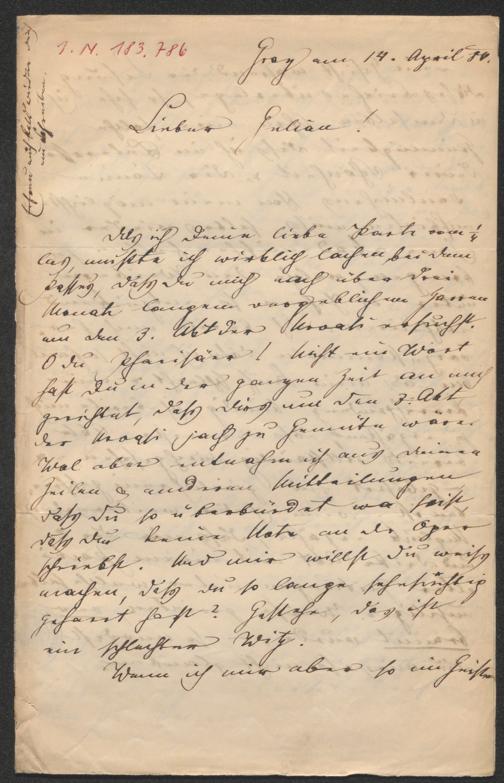 I. N. 183.786
Graz am 14. April 84.
Lieber Julian!
Als ich Deine liebe Karte vom
las mußte ich wirklich lachen bei dem
daß Du mich nach über drei
Monate langem vergeblichem Harren
um den 3. Akt der ersuchst.
O du Pharisäer! Nicht ein Wort
hast Du in der ganzen Zeit an mich
gerichtet, daß Dir's um den 3. Akt
der zu Gemüte wäre.
Wol aber entnahm ich aus Deinen
Zeilen & anderen Mitteilungen
daß Du so überbürdet
daß Du keine Note an der Oper
schriebst. Und mir willst Du weiß
machen, daß Du so lange sehnsüchtig
geharrt hast? Gestehe, das ist
ein schlechter Witz.
Wenn ich mir aber so im Geiste